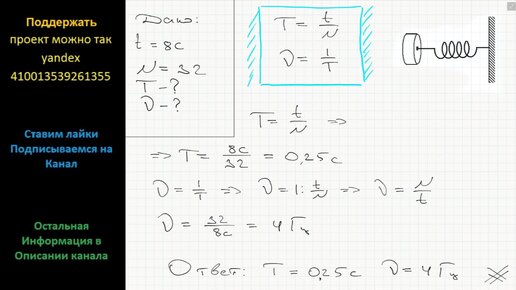 Поддержать
проект можно так
yandex
410013539261355
Ставим лайки
Подписываемся на
Канал
Остальная
Информация в
Описании канала
Дано:
t = 8c
N = 32
T - ?
ν - ?
T = t/N
ν = 1/T
T = t/N ⇒
⇒ T = 8c/32 = 0,25c
ν = 1/T ⇒ ν = 1 : t/N ⇒ ν = N/t
ν = 32/8c = 4 Гц
Ответ: T = 0,25c ν = 4 Гц